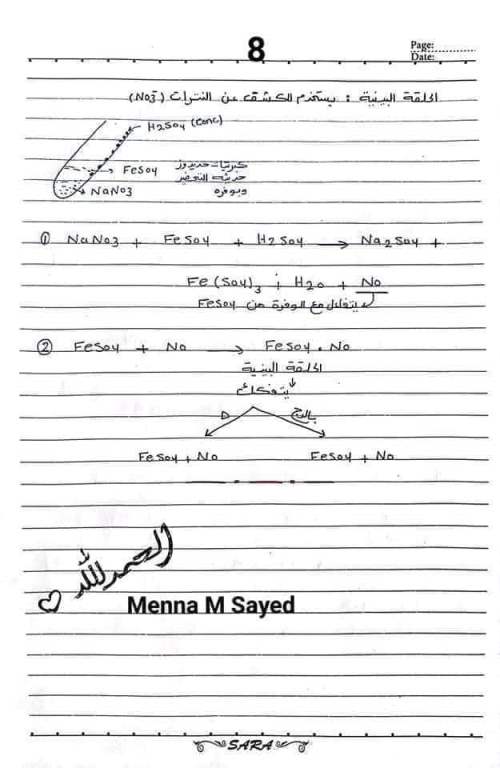 8
Page:
Date:
الحلقة البينية : يستخدم الكشف عن النترات (No3⁻)
H2So4 (conc)
FeSo4 كبريتات حديدوز
حديثه التحضير
NaNo3 وبوفره
① NaNo3 + FeSo4 + H2So4 → Na2So4 +
Fe(So4)3 + H2o + No
يتفاعل مع الوفرة من FeSo4
② FeSo4 + No → FeSo4 . No
الحلقة البينية
يتفكك
Δ بالرج
FeSo4 + No FeSo4 + No
الحمد لله
Menna M Sayed
SARA